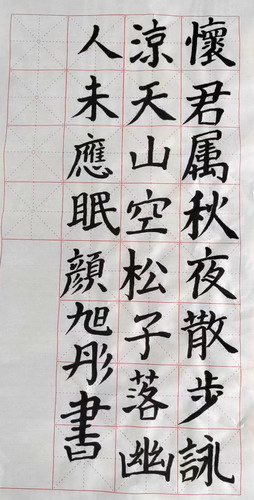 懷君属秋夜散步詠
涼天山空松子落幽
人未應眠
顔旭彤書